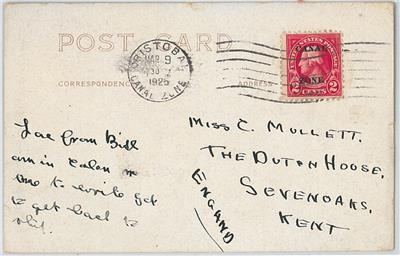 POST CARD
CORRESPONDENCE
ADDRESS
CRISTOBAL
MAR 9
1925
CANAL ZONE
UNITED STATES POSTAGE
CANAL
ZONE
2 CENTS 2
from Bill
am in
to write get
to get back to
Miss C. Mullett.
The Dutch House,
Sevenoaks,
Kent
England